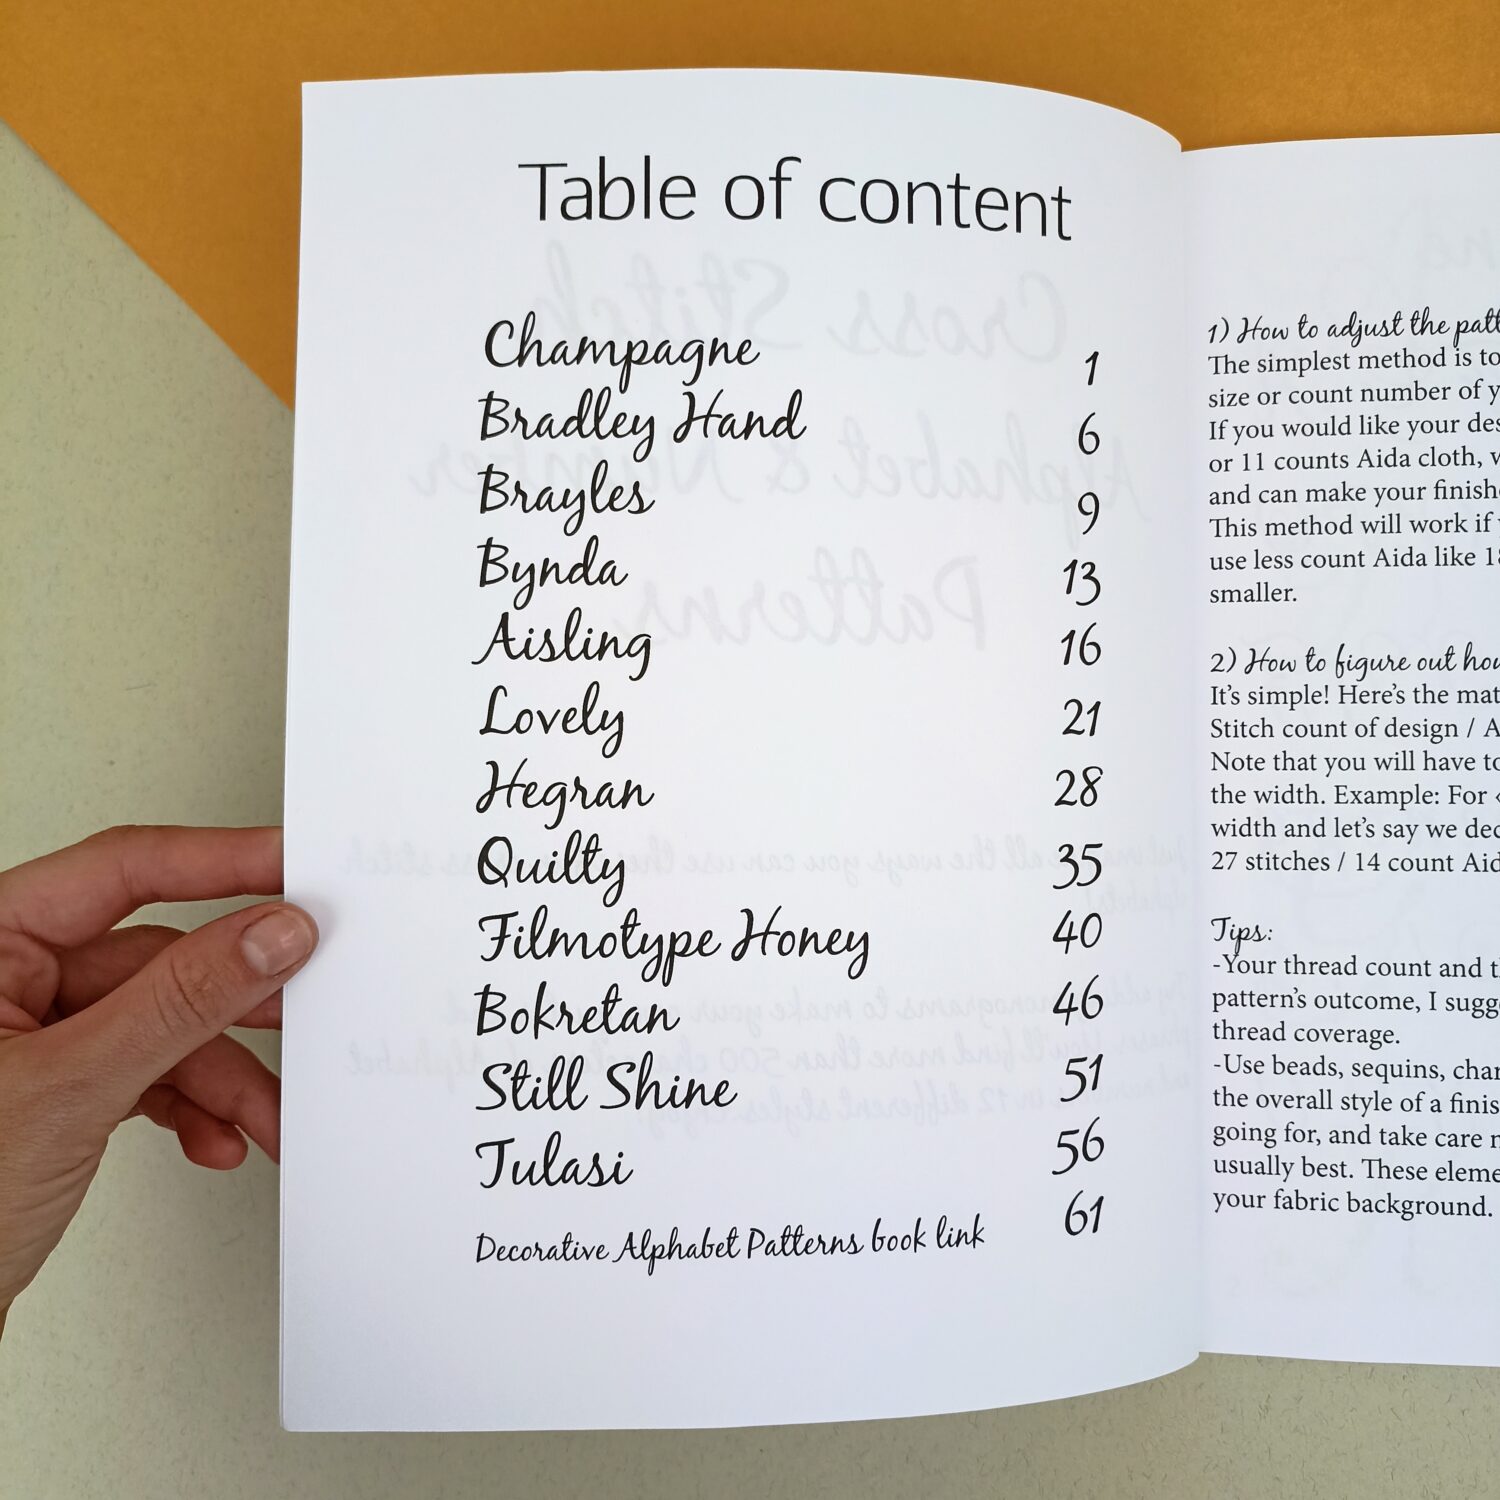 Table of content
Champagne 1
Bradley Hand 6
Brayles 9
Bynda 13
Aisling 16
Lovely 21
Hegran 28
Quilty 35
Filmotype Honey 40
Bokretan 46
Still Shine 51
Tulasi 56
Decorative Alphabet Patterns book link 61
1) How to adjust the
The simplest method is to
size or count number of
If you would like your
or 11 counts Aida cloth,
and can make your
This method will work if
use less count Aida like
smaller.
2) How to figure out
It's simple! Here's the
Stitch count of design /
Note that you will have to
the width. Example: For
width and let's say we
27 stitches / 14 count
Tips:
-Your thread count and
pattern's outcome, I
thread coverage.
-Use beads, sequins,
the overall style of a
going for, and take care
usually best. These
your fabric background.